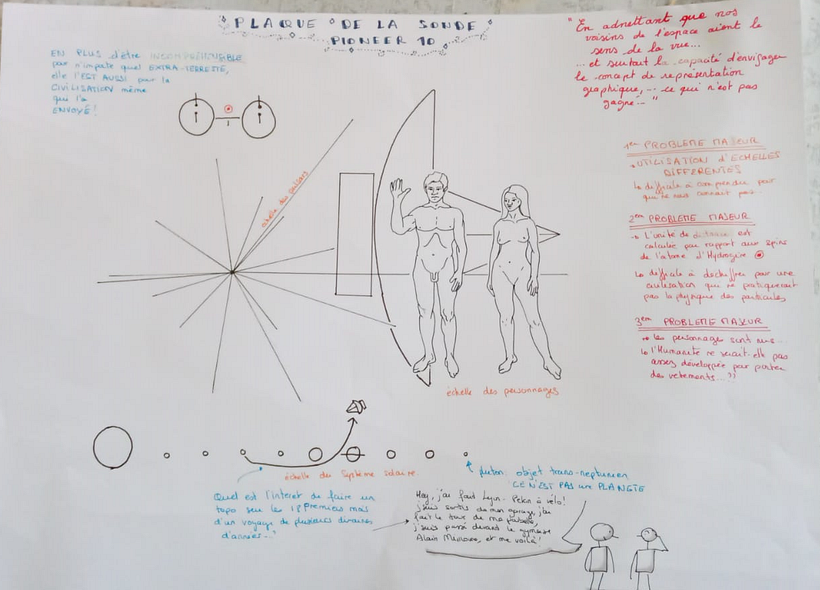 PLAQUE DE LA SONDE
PIONEER 10
EN PLUS d'être INCOMPREHENSIBLE
par n'importe quel EXTRA-TERRESTRE,
elle l'EST AUSSI par la
CIVILISATION même
qui l'a
ENVOYÉ!
"En admettant que nos
voisins de l'espace aient le
sens de la vue...
... et surtout la capacité d'envisager
le concept de représentation
graphique,... ce qui n'est pas
gagné..."
échelle des pulsars
1er PROBLEME MAJEUR
UTILISATION d'ECHELLES
DIFFERENTES
difficile à comprendre pour
qui ne nous connait pas
2eme PROBLEME MAJEUR
L'unité de distance est
calculée par rapport aux spins
de l'atome d'Hydrogène
difficile à déchiffrer pour une
civilisation qui ne pratiquerait
pas la physique des particules
3eme PROBLEME MAJEUR
les personnages sont nus...
l'Humanité ne serait-elle pas
assez développée pour porter
des vêtements...??
échelle des personnages
échelle du Système solaire
pluton: objet trans-neptunien
CE N'EST PAS une PLANETE
Quel est l'interet de faire un
topo sur les 18 premiers mois
d'un voyage de plusieurs dizaines
d'années...?
Hey, j'ai fait Lyon-Pekin à vélo!
j'suis sortis de mon garage, j'ai
fait le tour de ma
j'suis passé devant le gymnase
Alain Mimoun, et me voilà!